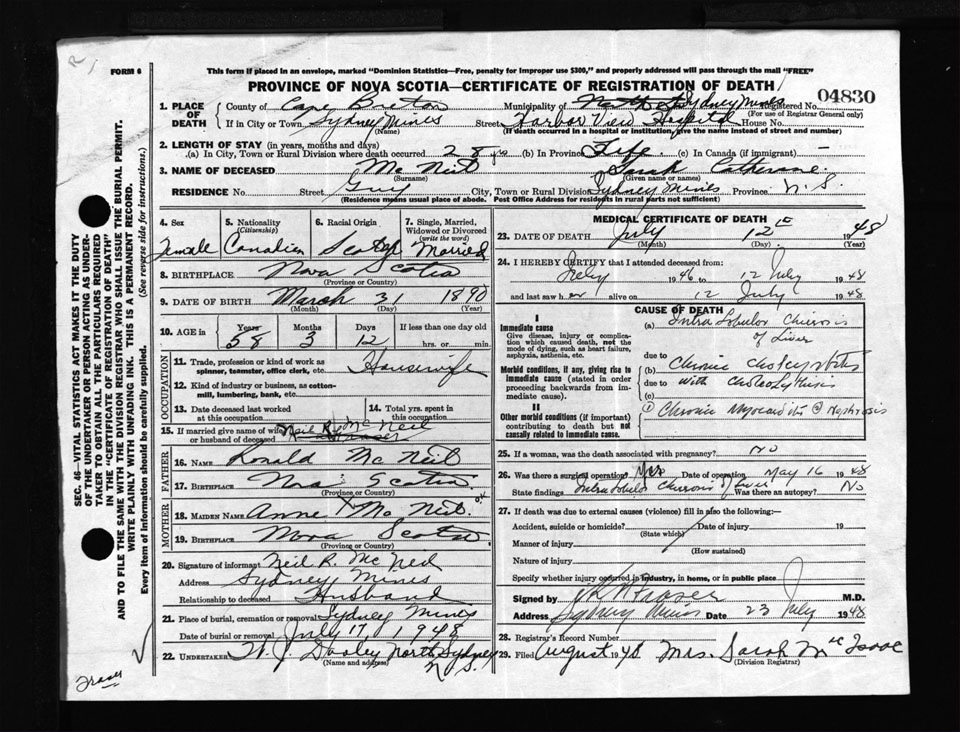 FORM 6
This form if placed in an envelope, marked "Dominion Statistics—Free, penalty for improper use $300," and properly addressed will pass through the mail "FREE"
PROVINCE OF NOVA SCOTIA—CERTIFICATE OF REGISTRATION OF DEATH
04830
1. PLACE OF DEATH County of Cape Breton Municipality of Sydney Mines Registered No.
(For use of Registrar General only)
If in City or Town Sydney Mines Street Harbor View Hospital House No.
(Name) (If death occurred in a hospital or institution, give the name instead of street and number)
2. LENGTH OF STAY (in years, months and days)
(a) In City, Town or Rural Division where death occurred 28 (b) In Province Life (c) In Canada (if immigrant) —
3. NAME OF DECEASED Mc Neil Sarah Catherine
(Surname) (Given name or names)
RESIDENCE No. Street Guy City, Town or Rural Division Sydney Mines Province N.S.
(Residence means usual place of abode. Post Office Address for residents in rural parts not sufficient)
4. Sex Female
5. Nationality (Citizenship) Canadian
6. Racial Origin Scotch
7. Single, Married, Widowed or Divorced (write the word) Married
8. BIRTHPLACE Nova Scotia
(Province or Country)
9. DATE OF BIRTH March 31 1890
(Month) (Day) (Year)
10. AGE in Years 58 Months 3 Days 12 If less than one day old hrs. or min.
OCCUPATION
11. Trade, profession or kind of work as spinner, teamster, office clerk, etc. Housewife
12. Kind of industry or business, as cotton-mill, lumbering, bank, etc.
13. Date deceased last worked at this occupation
14. Total yrs. spent in this occupation
15. If married give name of wife or husband of deceased Neil R. Mc Neil
FATHER
16. NAME Ronald Mc Neil
17. BIRTHPLACE Nova Scotia
(Province or Country)
MOTHER
18. MAIDEN NAME Anne Mc Neil
19. BIRTHPLACE Nova Scotia
(Province or Country)
20. Signature of informant Neil R. Mc Neil
Address Sydney Mines
Relationship to deceased Husband
21. Place of burial, cremation or removal Sydney Mines
Date of burial or removal July 17 1948
22. UNDERTAKER W. J. Dooley North Sydney N S.
(Name and address)
MEDICAL CERTIFICATE OF DEATH
23. DATE OF DEATH July 12th 1948
(Month) (Day) (Year)
24. I HEREBY CERTIFY that I attended deceased from:
July 1946 to 12 July 1948
and last saw her alive on 12 July 1948
CAUSE OF DEATH
I
Immediate cause
Give disease, injury or complication which caused death, not the mode of dying, such as heart failure, asphyxia, asthenia, etc.
(a) Intra Lobular Cirrosis of Liver
due to
Morbid conditions, if any, giving rise to immediate cause (stated in order proceeding backwards from immediate cause).
(b) Chronic
due to with
(c)
II
Other morbid conditions (if important) contributing to death but not causally related to immediate cause.
Chronic Myocarditis Nephrosis
25. If a woman, was the death associated with pregnancy? No
26. Was there a surgical operation? Yes Date of operation May 16 1948
State findings Intra Lobular Cirrosis of Liver Was there an autopsy? No
27. If death was due to external causes (violence) fill in also the following:—
Accident, suicide or homicide? Date of injury 19
(State which)
Manner of injury
(How sustained)
Nature of injury
Specify whether injury occurred in industry, in home, or in public place
Signed by Fraser M.D.
Address Sydney Mines Date 23 July 1948
28. Registrar's Record Number
29. Filed August 1948 Mrs. Sarah McIsaac
(Division Registrar)
SEC. 46—VITAL STATISTICS ACT MAKES IT THE DUTY
OF THE UNDERTAKER OR PERSON ACTING AS UNDER-
TAKER TO OBTAIN ALL THE PARTICULARS REQUIRED
IN THE "CERTIFICATE OF REGISTRATION OF DEATH"
AND TO FILE THE SAME WITH THE DIVISION REGISTRAR WHO SHALL ISSUE THE BURIAL PERMIT.
WRITE PLAINLY WITH UNFADING INK. THIS IS A PERMANENT RECORD.
Every item of information should be carefully supplied. (See reverse side for instructions.)
Fraser